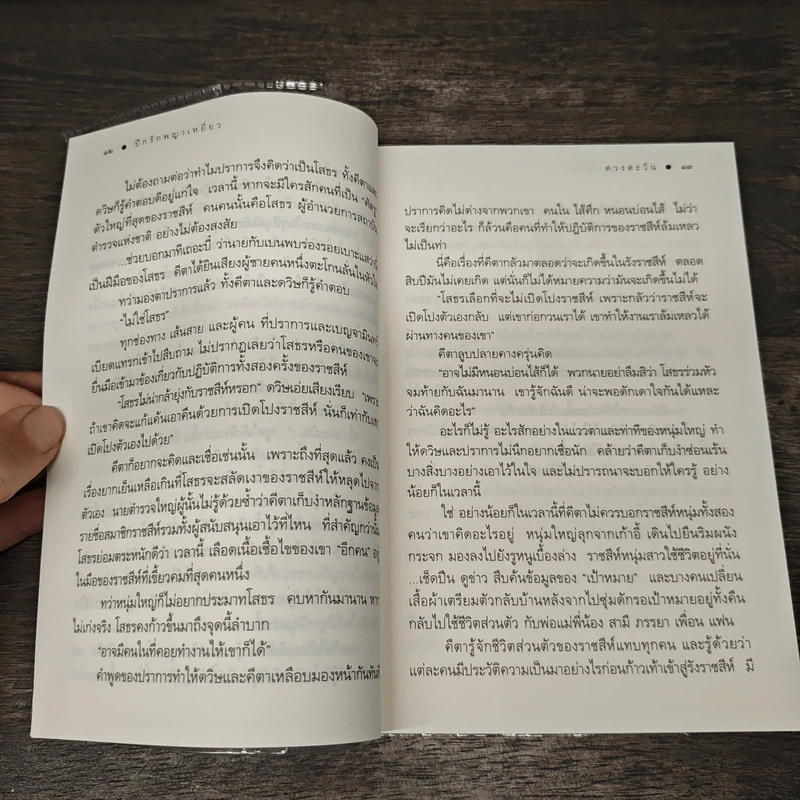 ๑๒ ● ปีกรักพญาเหยี่ยว
ไม่ต้องถามต่อว่าทำไมปราการจึงคิดว่าเป็นโสธร ทั้งคีตาและ
ดวิษก็รู้คำตอบดีอยู่แก่ใจ เวลานี้ หากจะมีใครสักคนที่เป็น “ศัตรู”
ตัวใหญ่ที่สุดของราชสีห์ คนคนนั้นคือโสธร ผู้อำนวยการสถาบัน
ตำรวจแห่งชาติ อย่างไม่ต้องสงสัย
...ช่วยบอกมาทีเถอะบี๋ ว่านายกับเบนพบร่องรอยเบาะแสว่านี่
เป็นฝีมือของโสธร คีตาได้ยินเสียงผู้ชายคนหนึ่งตะโกนลั่นในหัวใจ
ทว่ามองตาปราการแล้ว ทั้งคีตาและดวิษก็รู้คำตอบ
“ไม่ใช่โสธร”
ทุกช่องทาง เส้นสาย และผู้คน ที่ปราการและเบญจามินทร์
เบียดแทรกเข้าไปสืบถาม ไม่ปรากฏเลยว่าโสธรหรือคนของเขาจะ
ยื่นมือเข้ามาข้องเกี่ยวกับปฏิบัติการทั้งสองครั้งของราชสีห์
“โสธรไม่น่ากล้ายุ่งกับราชสีห์หรอก” ดวิษเอ่ยเสียงเรียบ “เพราะ
ถ้าเขาคิดจะแก้แค้นเอาคืนด้วยการเปิดโปงราชสีห์ นั่นก็เท่ากับเขา
เปิดโปงตัวเองไปด้วย”
คีตาก็อยากจะคิดและเชื่อเช่นนั้น เพราะถึงที่สุดแล้ว คงเป็น
เรื่องยากเย็นเหลือเกินที่โสธรจะสลัดเงาของราชสีห์ให้หลุดไปจาก
ตัวเอง นายตำรวจใหญ่ผู้นั้นไม่รู้ด้วยซ้ำว่าคีตาเก็บงำหลักฐานข้อมูล
รายชื่อสมาชิกราชสีห์รวมทั้งผู้สนับสนุนเอาไว้ที่ไหน ที่สำคัญกว่านั้น
โสธรย่อมตระหนักดีว่า เวลานี้ เลือดเนื้อเชื้อไขของเขา “อีกคน” อยู่
ในมือของราชสีห์ที่เขี้ยวคมที่สุดคนหนึ่ง
ทว่าหนุ่มใหญ่ก็ไม่อยากประมาทโสธร คบหากันมานาน หาก
ไม่เก่งจริง โสธรคงก้าวขึ้นมาถึงจุดนี้ลำบาก
“อาจมีคนในที่คอยทำงานให้เขาก็ได้”
คำพูดของปราการทำให้ดวิษและคีตาเหลือบมองหน้ากันทันที
ดวงตะวัน ● ๑๓
ปราการคิดไม่ต่างจากพวกเขา คนใน ไส้ศึก หนอนบ่อนไส้ ไม่ว่า
จะเรียกว่าอะไร ก็ล้วนคือคนที่ทำให้ปฏิบัติการของราชสีห์ล้มเหลว
ไม่เป็นท่า
นี่คือเรื่องที่คีตากลัวมาตลอดว่าจะเกิดขึ้นในรังราชสีห์ ตลอด
สิบปีมันไม่เคยเกิด แต่นั่นก็ไม่ได้หมายความว่ามันจะเกิดขึ้นไม่ได้
“โสธรเลือกที่จะไม่เปิดโปงราชสีห์ เพราะกลัวว่าราชสีห์จะ
เปิดโปงตัวเองกลับ แต่เขาก่อกวนเราได้ เขาทำให้งานเราล้มเหลวได้
ผ่านทางคนของเขา”
คีตาลูบปลายคางครุ่นคิด
“อาจไม่มีหนอนบ่อนไส้ก็ได้ พวกนายอย่าลืมสิว่า โสธรร่วมหัว
จมท้ายกับฉันมานาน เขารู้จักฉันดี น่าจะพอดักเดาใจกันได้แหละ
ว่าฉันคิดอะไร”
อะไรก็ไม่รู้ อะไรสักอย่างในแววตาและท่าทีของหนุ่มใหญ่ ทำ
ให้ดวิษและปราการไม่นึกอยากเชื่อนัก คล้ายว่าคีตาเก็บงำซ่อนเร้น
บางสิ่งบางอย่างเอาไว้ในใจ และไม่ปรารถนาจะบอกให้ใครรู้ อย่าง
น้อยก็ในเวลานี้
ใช่ อย่างน้อยก็ในเวลานี้ที่คีตาไม่ควรบอกราชสีห์หนุ่มทั้งสอง
คนว่าเขาคิดอะไรอยู่ หนุ่มใหญ่ลุกจากเก้าอี้ เดินไปยืนริมผนัง
กระจก มองลงไปยังรูหนูเบื้องล่าง ราชสีห์หนุ่มสาวใช้ชีวิตอยู่ที่นั่น
...เช็ดปืน ดูข่าว สืบค้นข้อมูลของ “เป้าหมาย” และบางคนเปลี่ยน
เสื้อผ้าเตรียมตัวกลับบ้านหลังจากไปซุ่มดักรอเป้าหมายอยู่ทั้งคืน
กลับไปใช้ชีวิตส่วนตัว กับพ่อแม่พี่น้อง สามี ภรรยา เพื่อน แฟน
คีตารู้จักชีวิตส่วนตัวของราชสีห์แทบทุกคน และรู้ด้วยว่า
แต่ละคนมีประวัติความเป็นมาอย่างไรก่อนก้าวเท้าเข้าสู่รังราชสีห์ มี